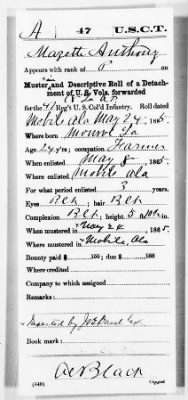 A 47 U.S.C.T.
Mazett Anthony
Appears with rank of P
Muster and Descriptive Roll of a Detach-
ment of U. S. Vols. forwarded
for the 47 Reg't U. S. Col'd Infantry. Roll dated
Mobile Ala May 24, 1865
Where born Monroe La
Age 24 y'rs; occupation Farmer
When enlisted May 8, 1865
Where enlisted Mobile Ala
For what period enlisted 3 years.
Eyes Blk; hair Blk
Complexion Blk; height 5 ft. in.
When mustered in May 24, 1865
Where mustered in Mobile Ala
Bounty paid $ 100; due $ 100
Where credited
Company to which assigned
Remarks:
Book mark:
(340) Copyist.